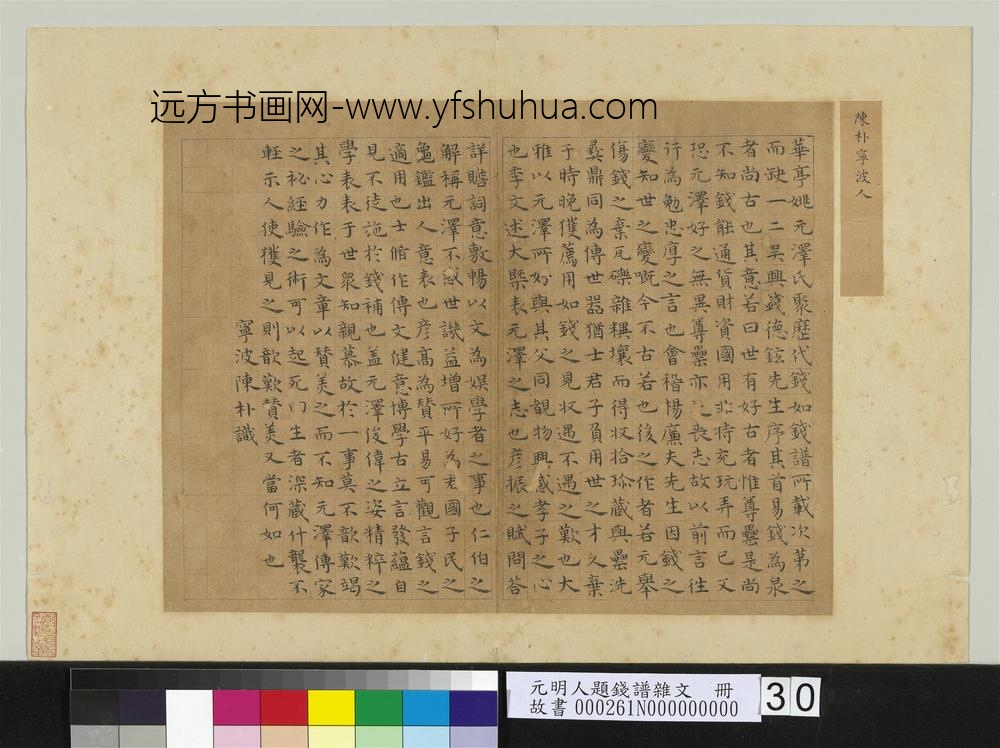 远方书画网-www.yfshuhua.com
陳朴寧波人
華亭姚元澤氏聚歷代錢如錢譜所載次第之
而缺一二吳興錢德鉉先生序其首易錢為泉
者尚古也其意若曰世有好古者惟尊罍是尚
不知錢能通貨財資國用非特充玩弄而已又
恐元澤好之無異尊罍亦喪志故以前言往
行為勉忠厚之言也會稽楊廉夫先生因錢之
變知世之變嘅今不古若也後之作者若元舉
傷錢之棄瓦礫雜糞壤而得收拾珎藏與罍洗
彝鼎同為傳世器猶士君子負用世之才久棄
于時晚獲薦用如錢之見收遇不遇之歎也大
雅以元澤所好與其父同覩物興感孝子之心
也季文述大槩表元澤之志也彥振之賦問荅
詳贍詞意敷暢以文為娱學者之事也仁伯之
解稱元澤不惑世譏益增所好為君國子民之
龜鑑出人意表也彥高為贊平易可觀言錢之
適用也士脩作傳文健意博學古立言發蘊自
見不徒施於錢補也盖元澤俊偉之姿精粹之
學表表于世眾知親慕故於一事莫不歆歎竭
其心力作為文章以賛美之而不知元澤傳家
之祕經驗之術可以起死门生者深藏什襲不
輕示人使獲見之則歆歎賛美又當何如也
寧波陳朴識
元明人題錢譜雜文 冊
故書000261N000000000
30